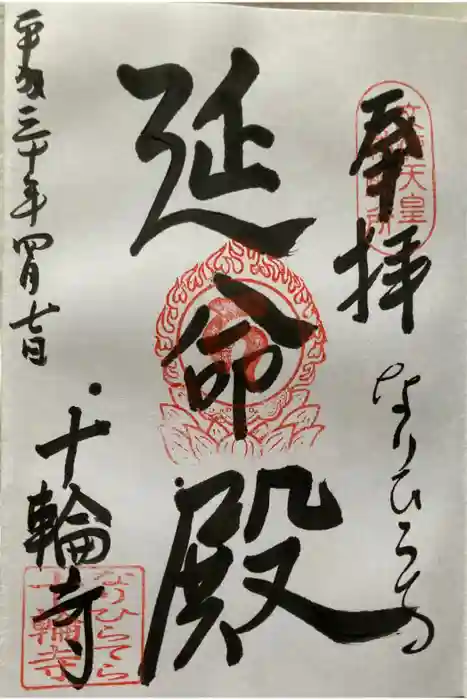 奉拝
なりひらでら
延命殿
十輪寺
平成三十年四月七日
なりひらてら
十輪寺